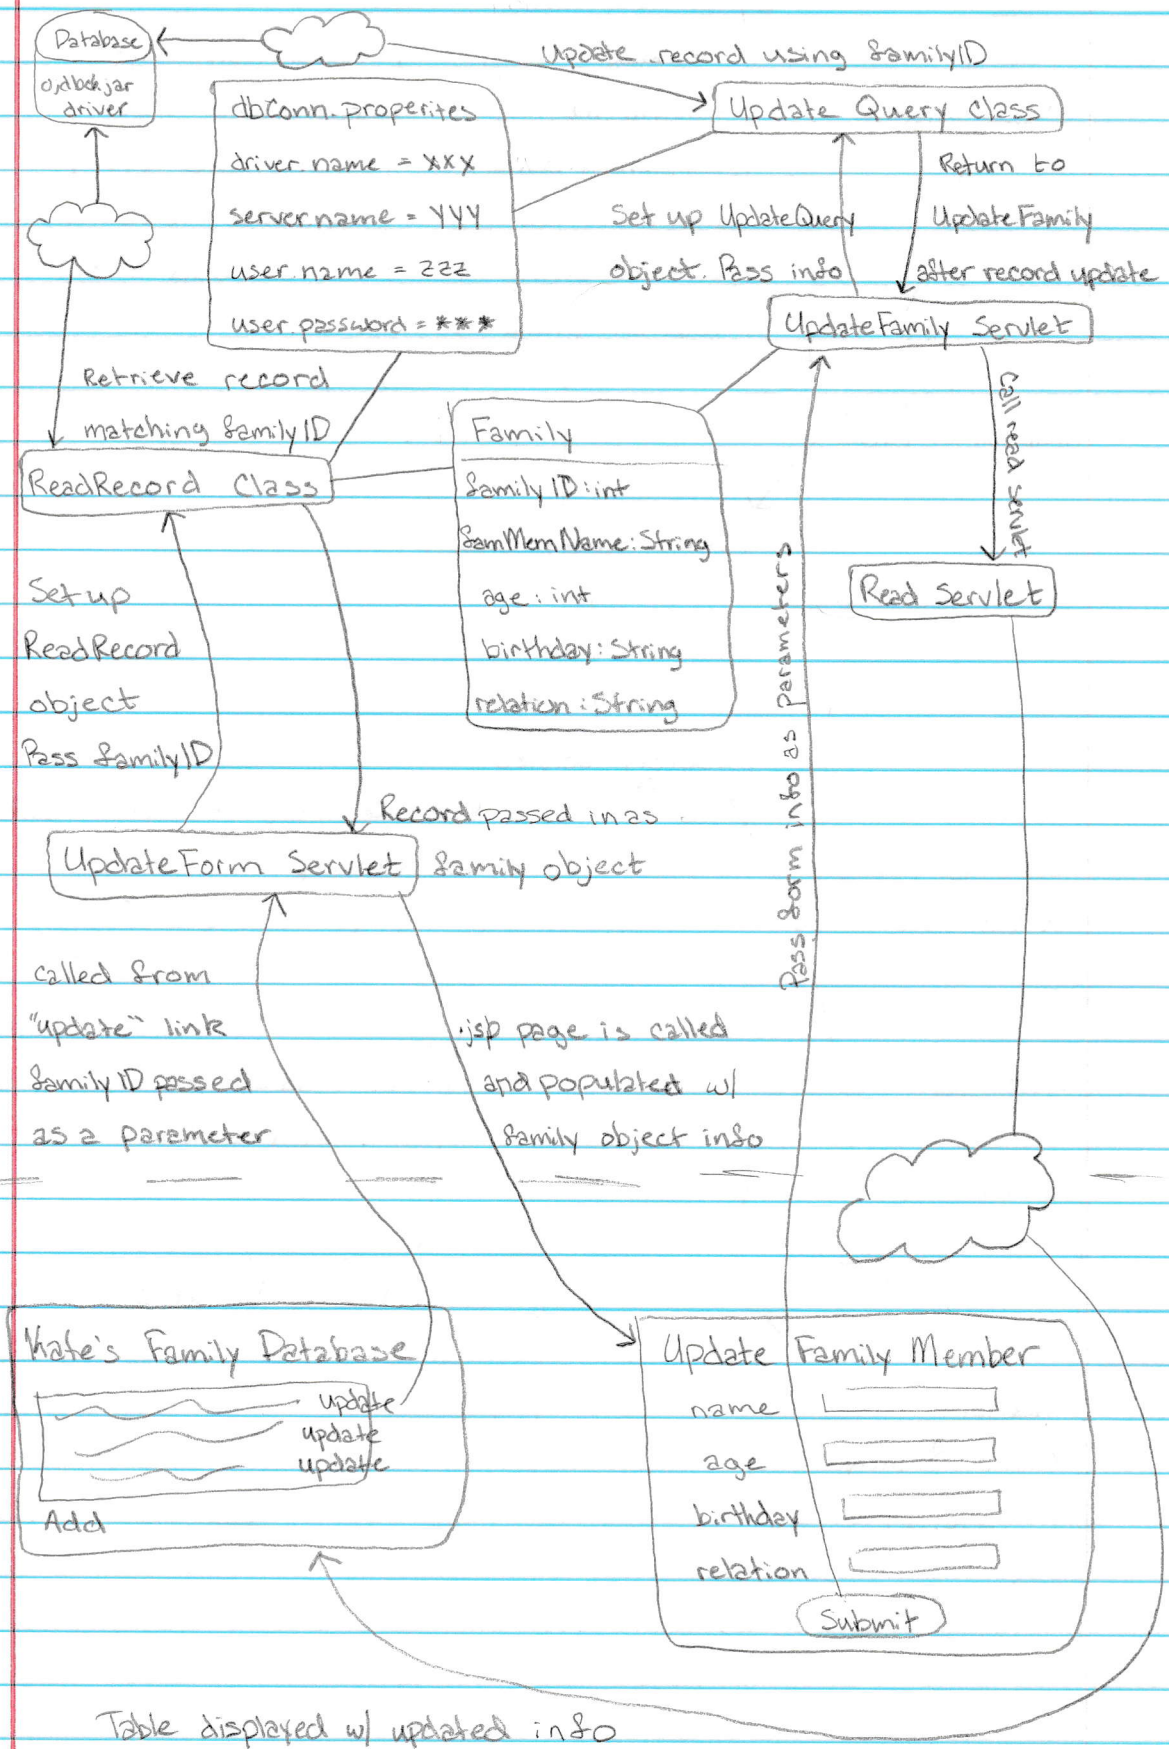 Database
ojdbc6.jar
driver
Update record using familyID
dbConn.properites
driver.name = XXX
server.name = YYY
user.name = ZZZ
user.password = ***
Update Query Class
Return to
UpdateFamily
after record update
Set up UpdateQuery
object. Pass info
UpdateFamily Servlet
Retrieve record
matching familyID
ReadRecord Class
Family
familyID:int
famMemName:String
age:int
birthday:String
relation:String
Call read servlet
Read Servlet
Set up
ReadRecord
object
Pass familyID
Record passed in as
family object
UpdateForm Servlet
Pass form info as parameters
called from
"update" link
familyID passed
as a parameter
.jsp page is called
and populated w/
family object info
Kate's Family Database
update
update
update
Add
Update Family Member
name
age
birthday
relation
Submit
Table displayed w/ updated info